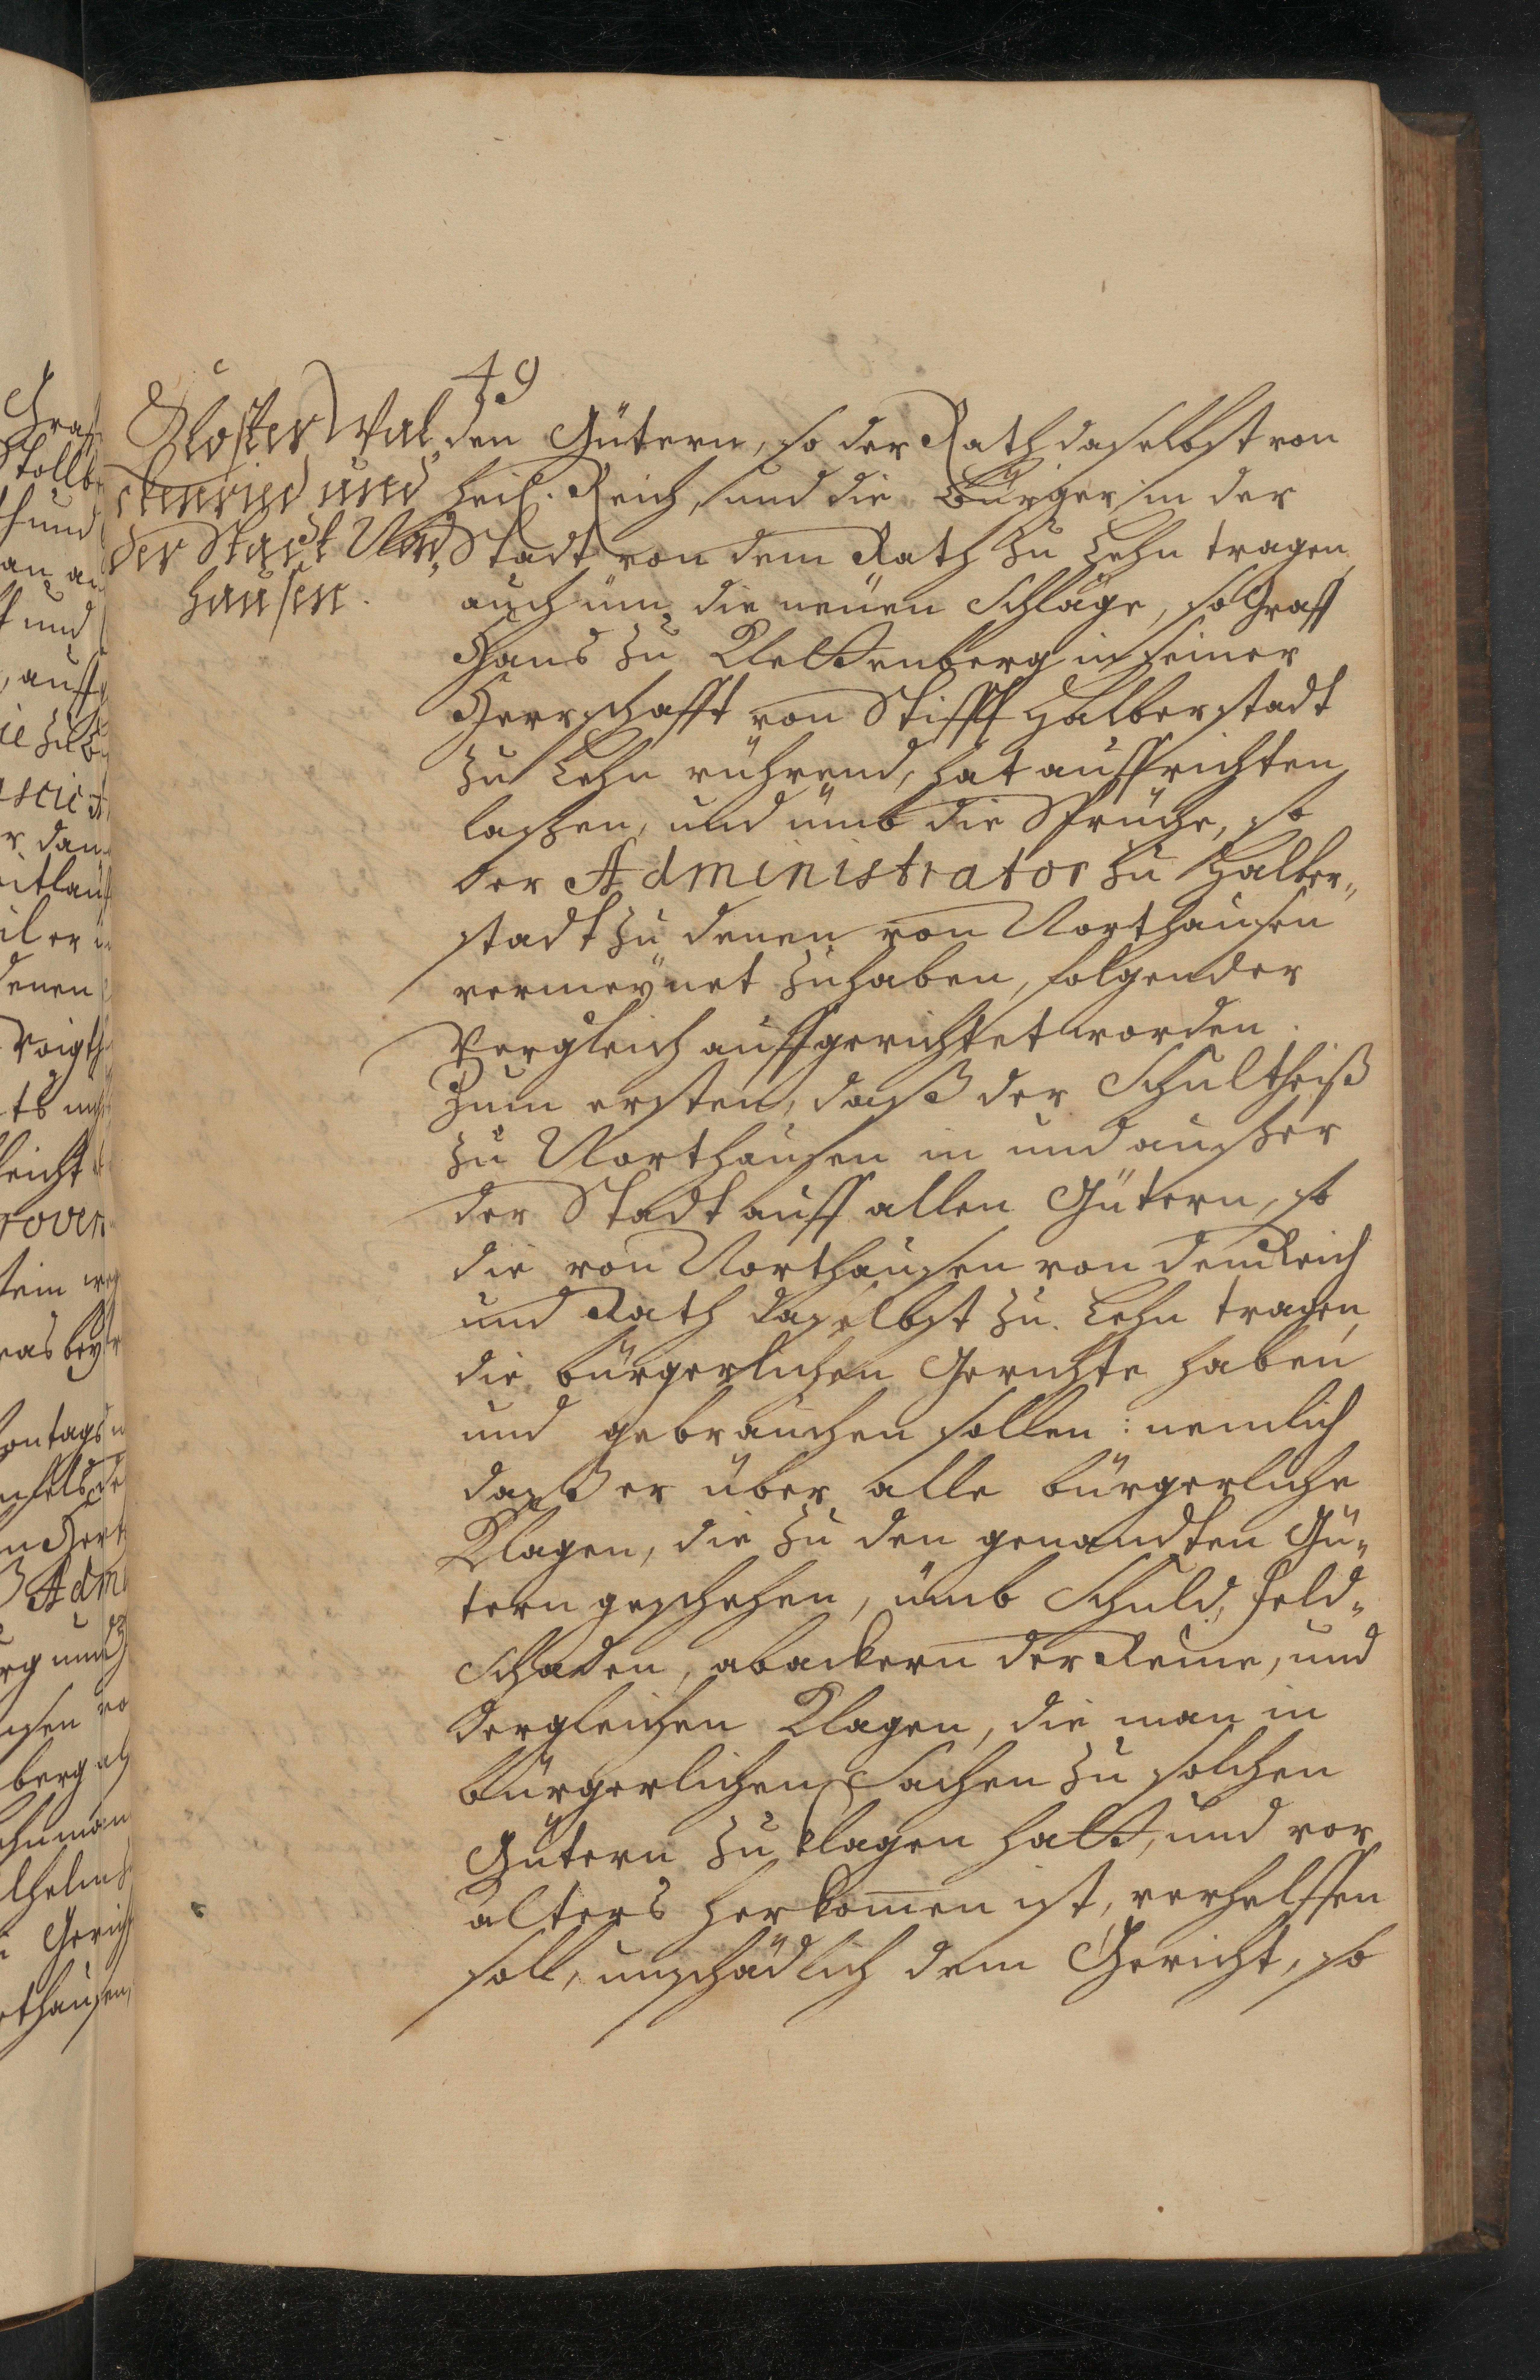 49
Closter Wal„
ckenried und
der Stadt Nord„
hausen.
den Gütern, so der Rath daselbst von
heil. Reich, und die Bürger in der
Stadt von dem Rath zu Lehn tragen,
auch üm die neüen Schläge, so Graff
Hans zu Klettenberg in seiner
Herrschafft von Stifft Halberstadt
zu Lehn rührend, hat auffrichten
laßen, und ümb die Sprüche, so
der Administrator zu Halber„
stadt zu denen von Northausen
vermeÿnet zuhaben, folgender
Vergleich auffgerichtet worden.
Zum ersten, daß der Schultheiß
zu Northausen in und außer
der Stadt auff allen Gütern, so
die von Northausen von dem Reich
und Rath daselbst zu Lehn tragen,
die bürgerlichen Gerichte haben
und gebrauchen sollen: nemlich
daß er über alle bürgerliche
Klagen, die zu den genandten Gü„
tern geschehen, ümb Schuld, Feld„
Schaden, abackern der Reine, und
dergleichen Klagen, die man in
bürgerlichen Sachen zu solchen
Gütern zu klagen hatt, und vor
alters herkom̅en ist, verhelffen
soll, unschädlich dem Gericht, so